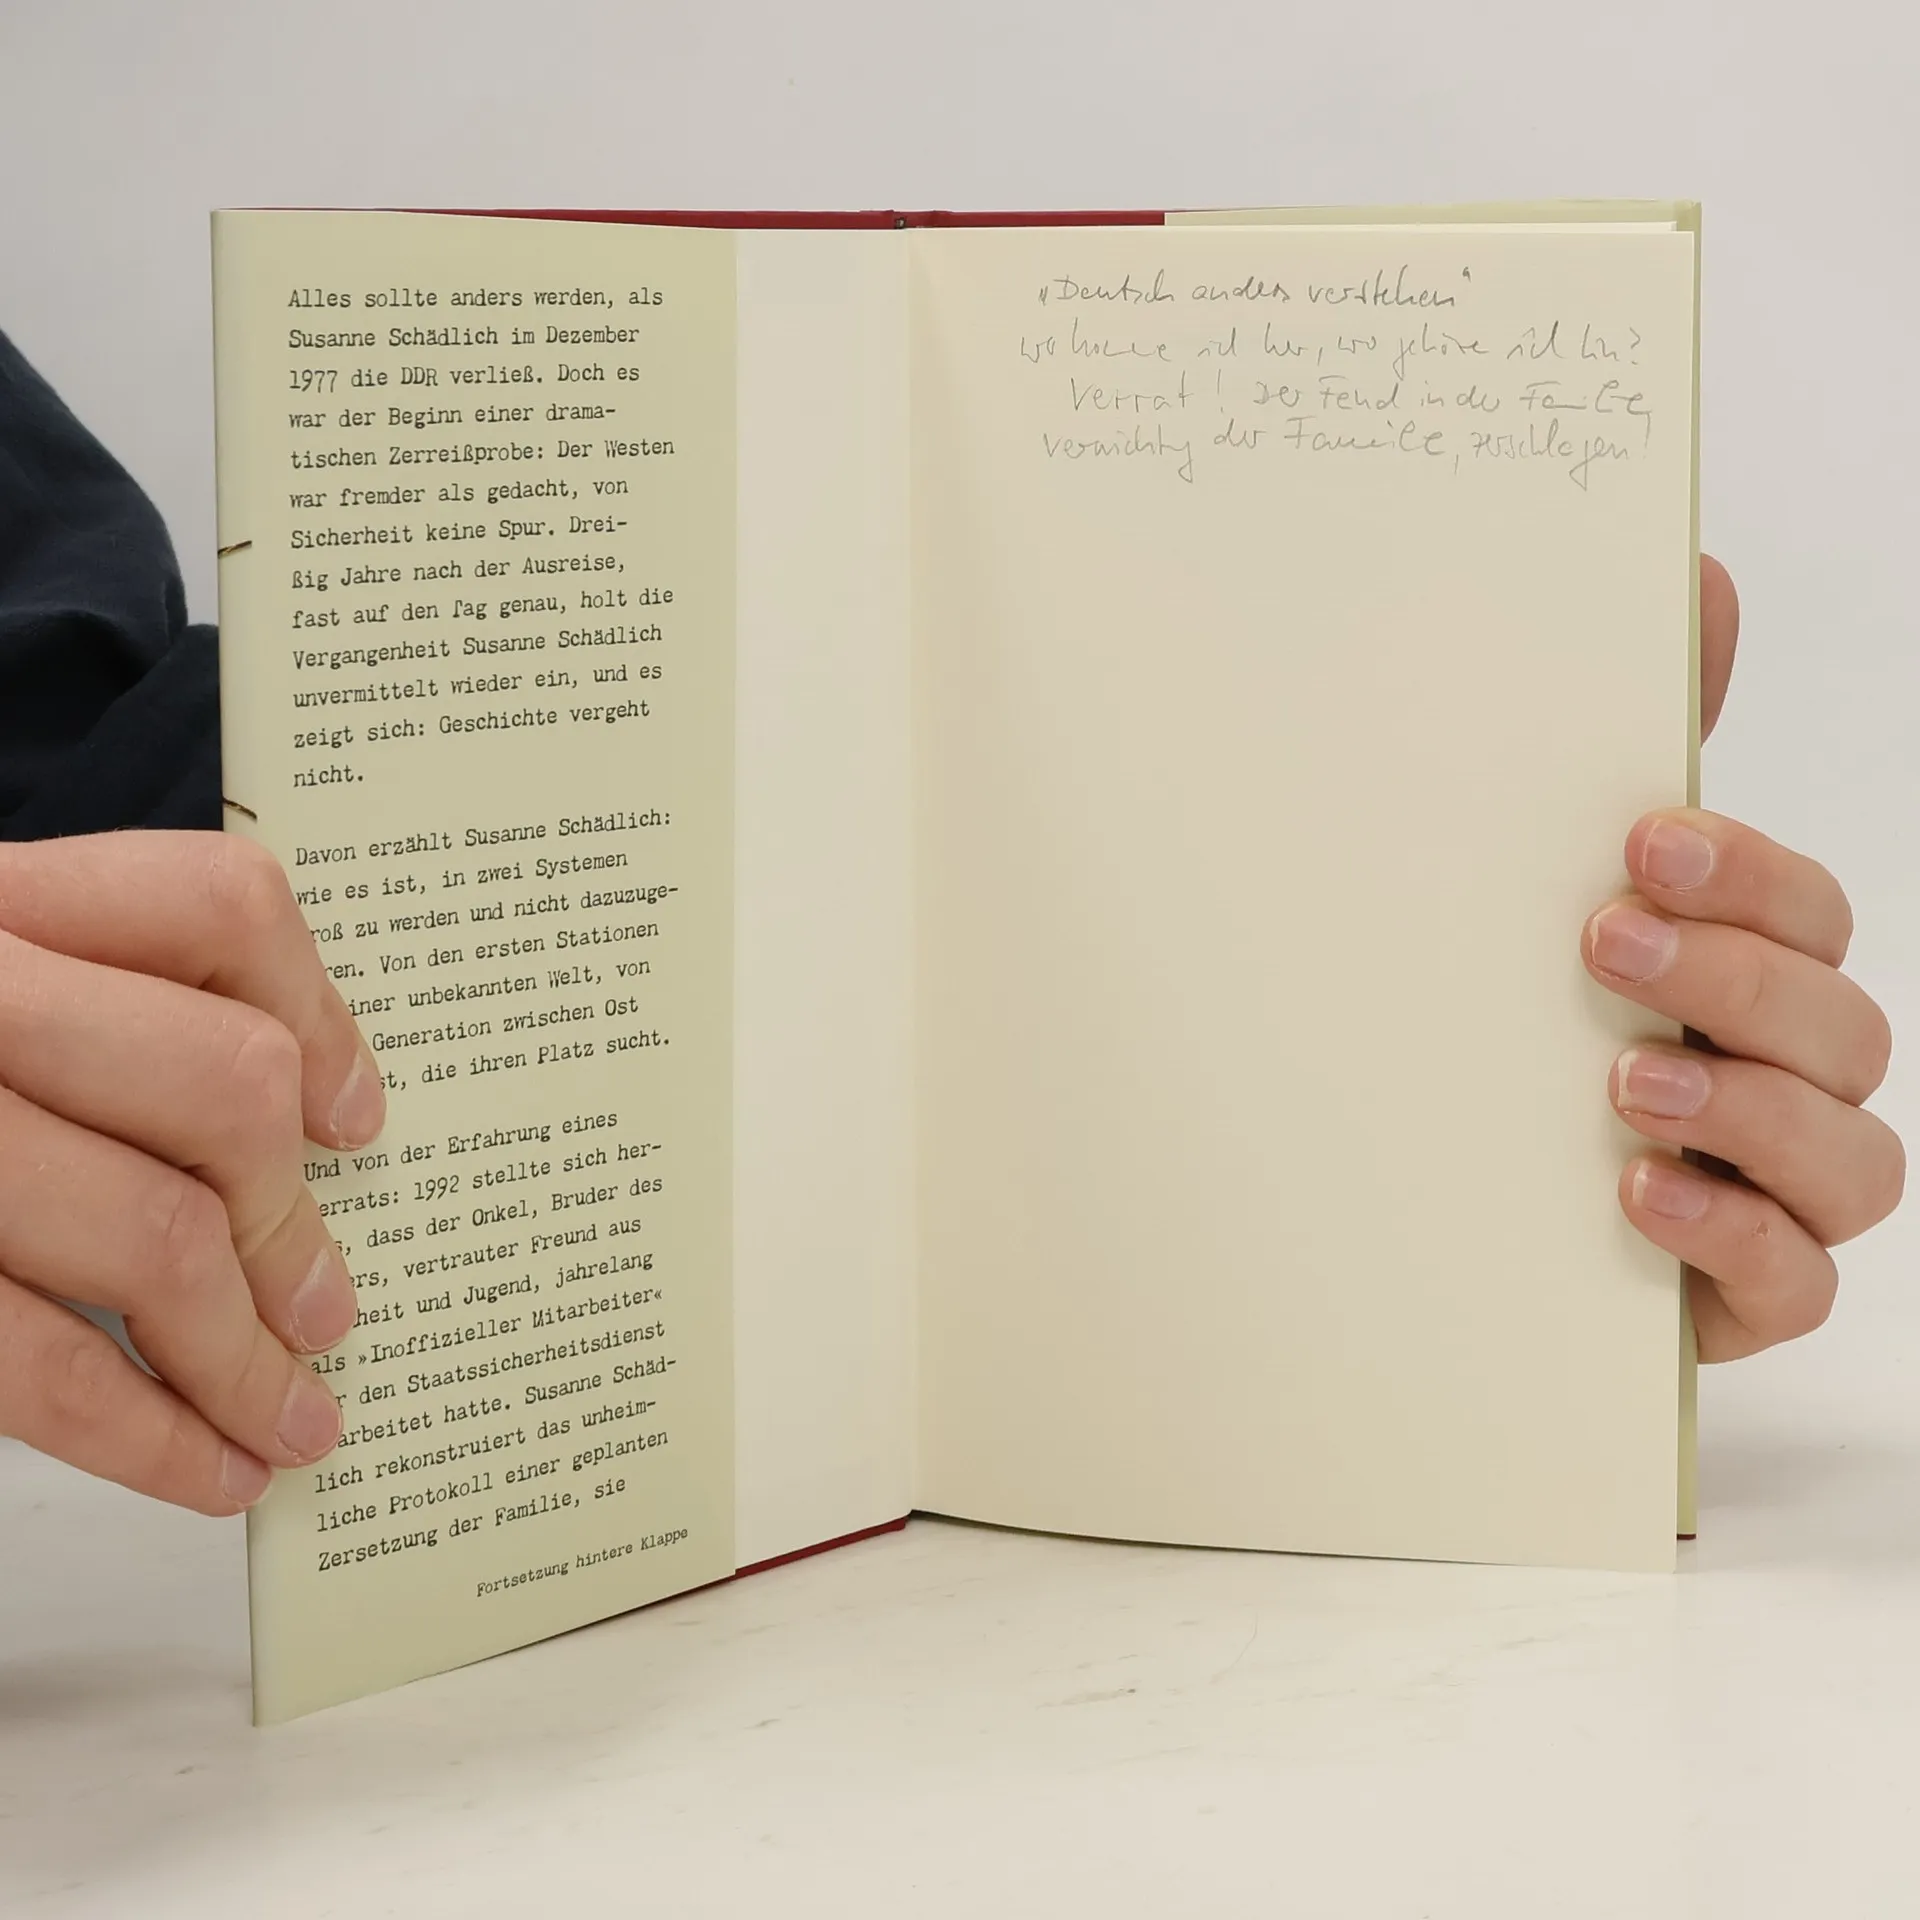 Alles sollte anders werden, als
Susanne Schädlich im Dezember
1977 die DDR verließ. Doch es
war der Beginn einer drama-
tischen Zerreißprobe: Der Westen
war fremder als gedacht, von
Sicherheit keine Spur. Drei-
ßig Jahre nach der Ausreise,
fast auf den Tag genau, holt die
Vergangenheit Susanne Schädlich
unvermittelt wieder ein, und es
zeigt sich: Geschichte vergeht
nicht.
Davon erzählt Susanne Schädlich:
wie es ist, in zwei Systemen
roß zu werden und nicht dazuzuge-
ren. Von den ersten Stationen
iner unbekannten Welt, von
Generation zwischen Ost
st, die ihren Platz sucht.
Und von der Erfahrung eines
errats: 1992 stellte sich her-
s, dass der Onkel, Bruder des
ers, vertrauter Freund aus
heit und Jugend, jahrelang
als »Inoffizieller Mitarbeiter«
r den Staatssicherheitsdienst
arbeitet hatte. Susanne Schäd-
lich rekonstruiert das unheim-
liche Protokoll einer geplanten
Zersetzung der Familie, sie
Fortsetzung hintere Klappe
„Deutsch anders verstehen“
wo komme ich her, wo gehöre ich hin?
Verrat! Der Feind in der Familie,
Vernichtung der Familie, zerschlagen!